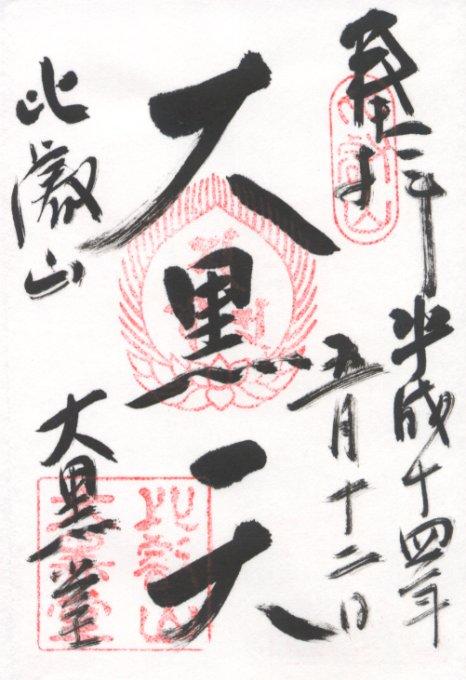 奉拝
平成十四年
五月十二日
大黒天
比叡山
大黒堂